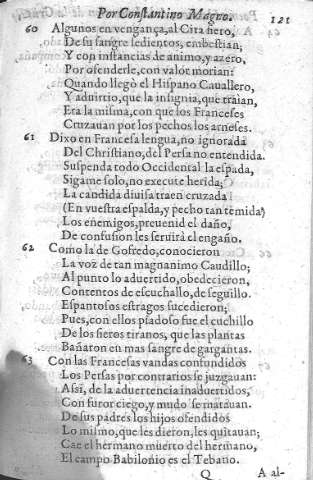 Por Constantino Magno. 121
60 Algunos en vengança, al Cita fiero,
De su sangre sedientos, embestian;
Y con instancias de animo, y azero,
Por ofenderle, con valor morian:
Quando llegò el Hispano Cauallero,
Y aduirtio, que la insignia, que traían,
Era la misma, con que los Franceses
Cruzauan por los pechos los arneses.
61 Dixo en Francesa lengua, no ignorada
Del Christiano, del Persa no entendida.
Suspenda todo Occidental la espada,
Sigame solo, no execute herida;
La candida diuisa traen cruzada
(En vuestra espalda, y pecho tan temida)
Los enemigos, preuenid el daño,
De confusion les seruirà el engaño.
62 Como la de Gofredo, conocieron
La voz de tan magnanimo Caudillo;
Al punto lo aduertido, obedecieron,
Contentos de escuchallo, de seguillo.
Espantosos estragos sucedieron;
Pues, con ellos piadoso fue el cuchillo
De los fieros tiranos, que las plantas
Bañaron en mas sangre de gargantas.
63 Con las Francesas vandas confundidos
Los Persas por contrarios se juzgauan:
Assi, de la aduertencia inaduertidos,
Con furor ciego, y mudo se matauan.
De sus padres los hijos ofendidos
Lo mismo, que les dieron, les quitauan;
Cae el hermano muerto del hermano,
El campo Babilonio es el Tebano.
Q A al-